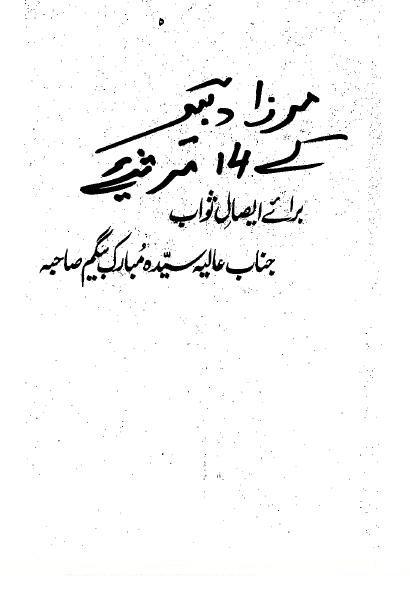 مرزا دبیر
کے 14 مرثیے
برائے ایصالِ ثواب
جناب عالیہ سیّدہ مُبارک بیگم صاحبہ